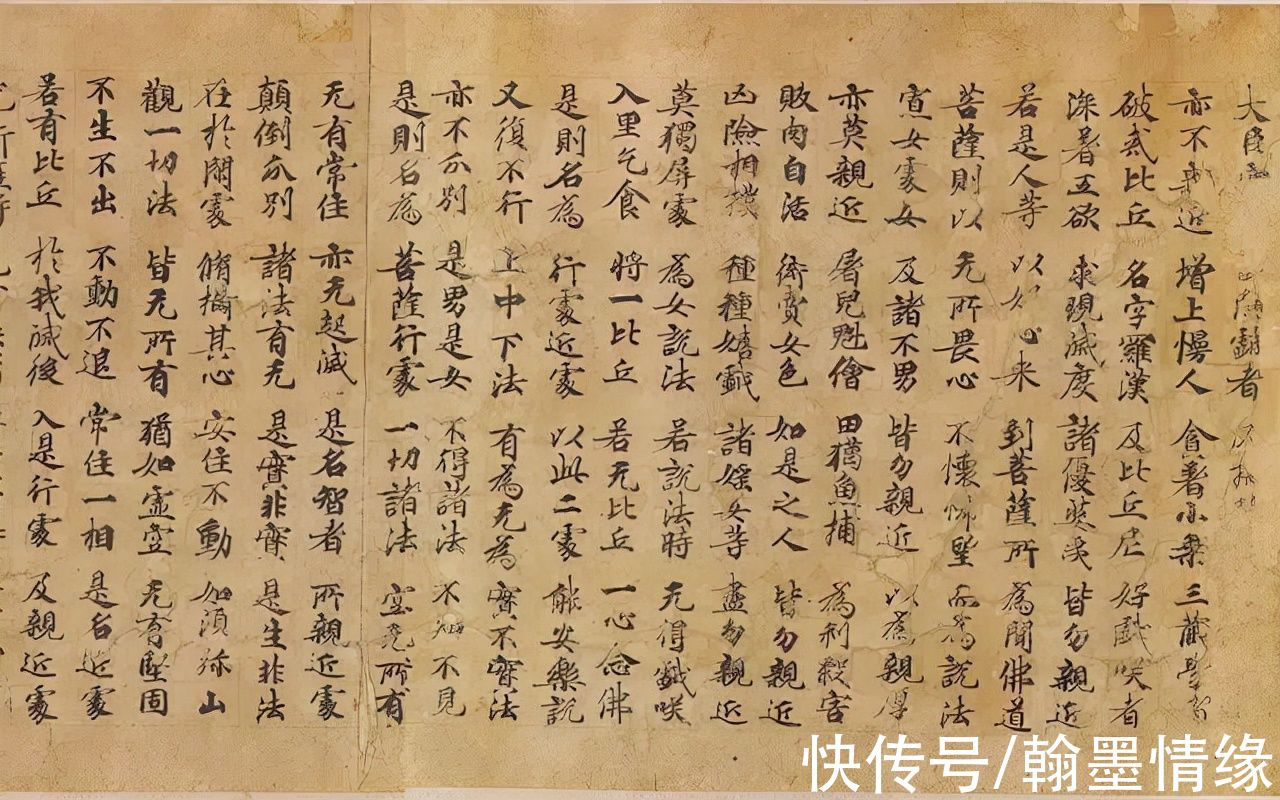 大臣 戲者
亦不親近 增上慢人 貪著小乘 三藏學者
破戒比丘 名字羅漢 及比丘尼 好戲咲者
深著五欲 求現滅度 諸優婆夷 皆勿親近
若是人等 以好心来 到菩薩所 為聞佛道
菩薩則以 无所畏心 不懷悕望 而為說法
寡女處女 及諸不男 皆勿親近 以為親厚
亦莫親近 屠兒魁膾 田獵魚捕 為利殺害
販肉自活 衒賣女色 如是之人 皆勿親近
凶險相撲 種種嬉戲 諸婬女等 盡勿親近
莫獨屏處 為女說法 若說法時 无得戲咲
入里乞食 將一比丘 若无比丘 一心念佛
是則名為 行處近處 以此二處 能安樂說
又復不行 上中下法 有為无為 實不實法
亦不分別 是男是女 不得諸法 不知不見
是則名為 菩薩行處 一切諸法 空无所有
无有常住 亦无起滅 是名智者 所親近處
顛倒分別 諸法有无 是實非實 是生非法
在於閑處 脩攝其心 安住不動 如須弥山
觀一切法 皆无所有 猶如虛空 无有堅固
不生不出 不動不退 常住一相 是名近處
若有比丘 於我滅後 入是行處 及親近處
快传号/翰墨情缘